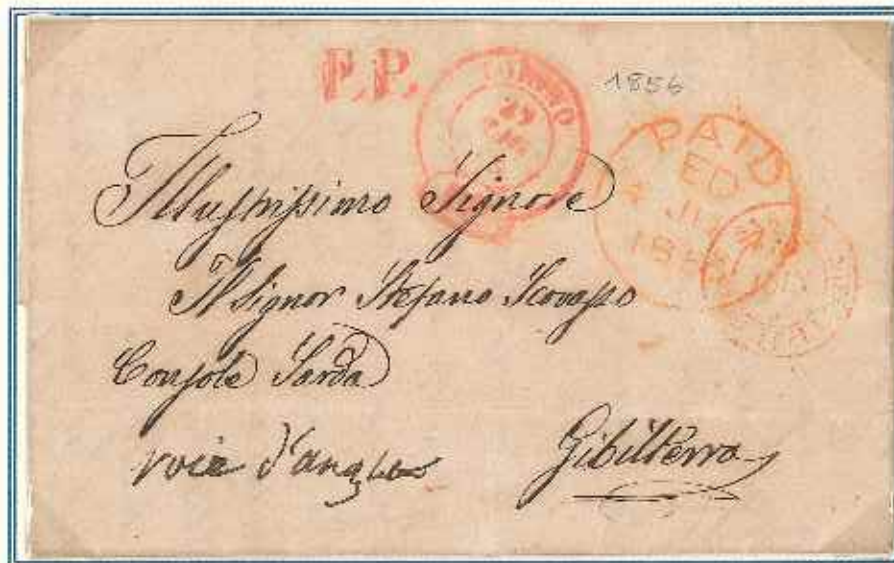 P.P.
TORINO
29
1856
PAID
ED
4 JU
1856
Illustrissimo Signore
Il Signor Stefano Scovasso
Console Sardo
voie d'angle
Gibilterra